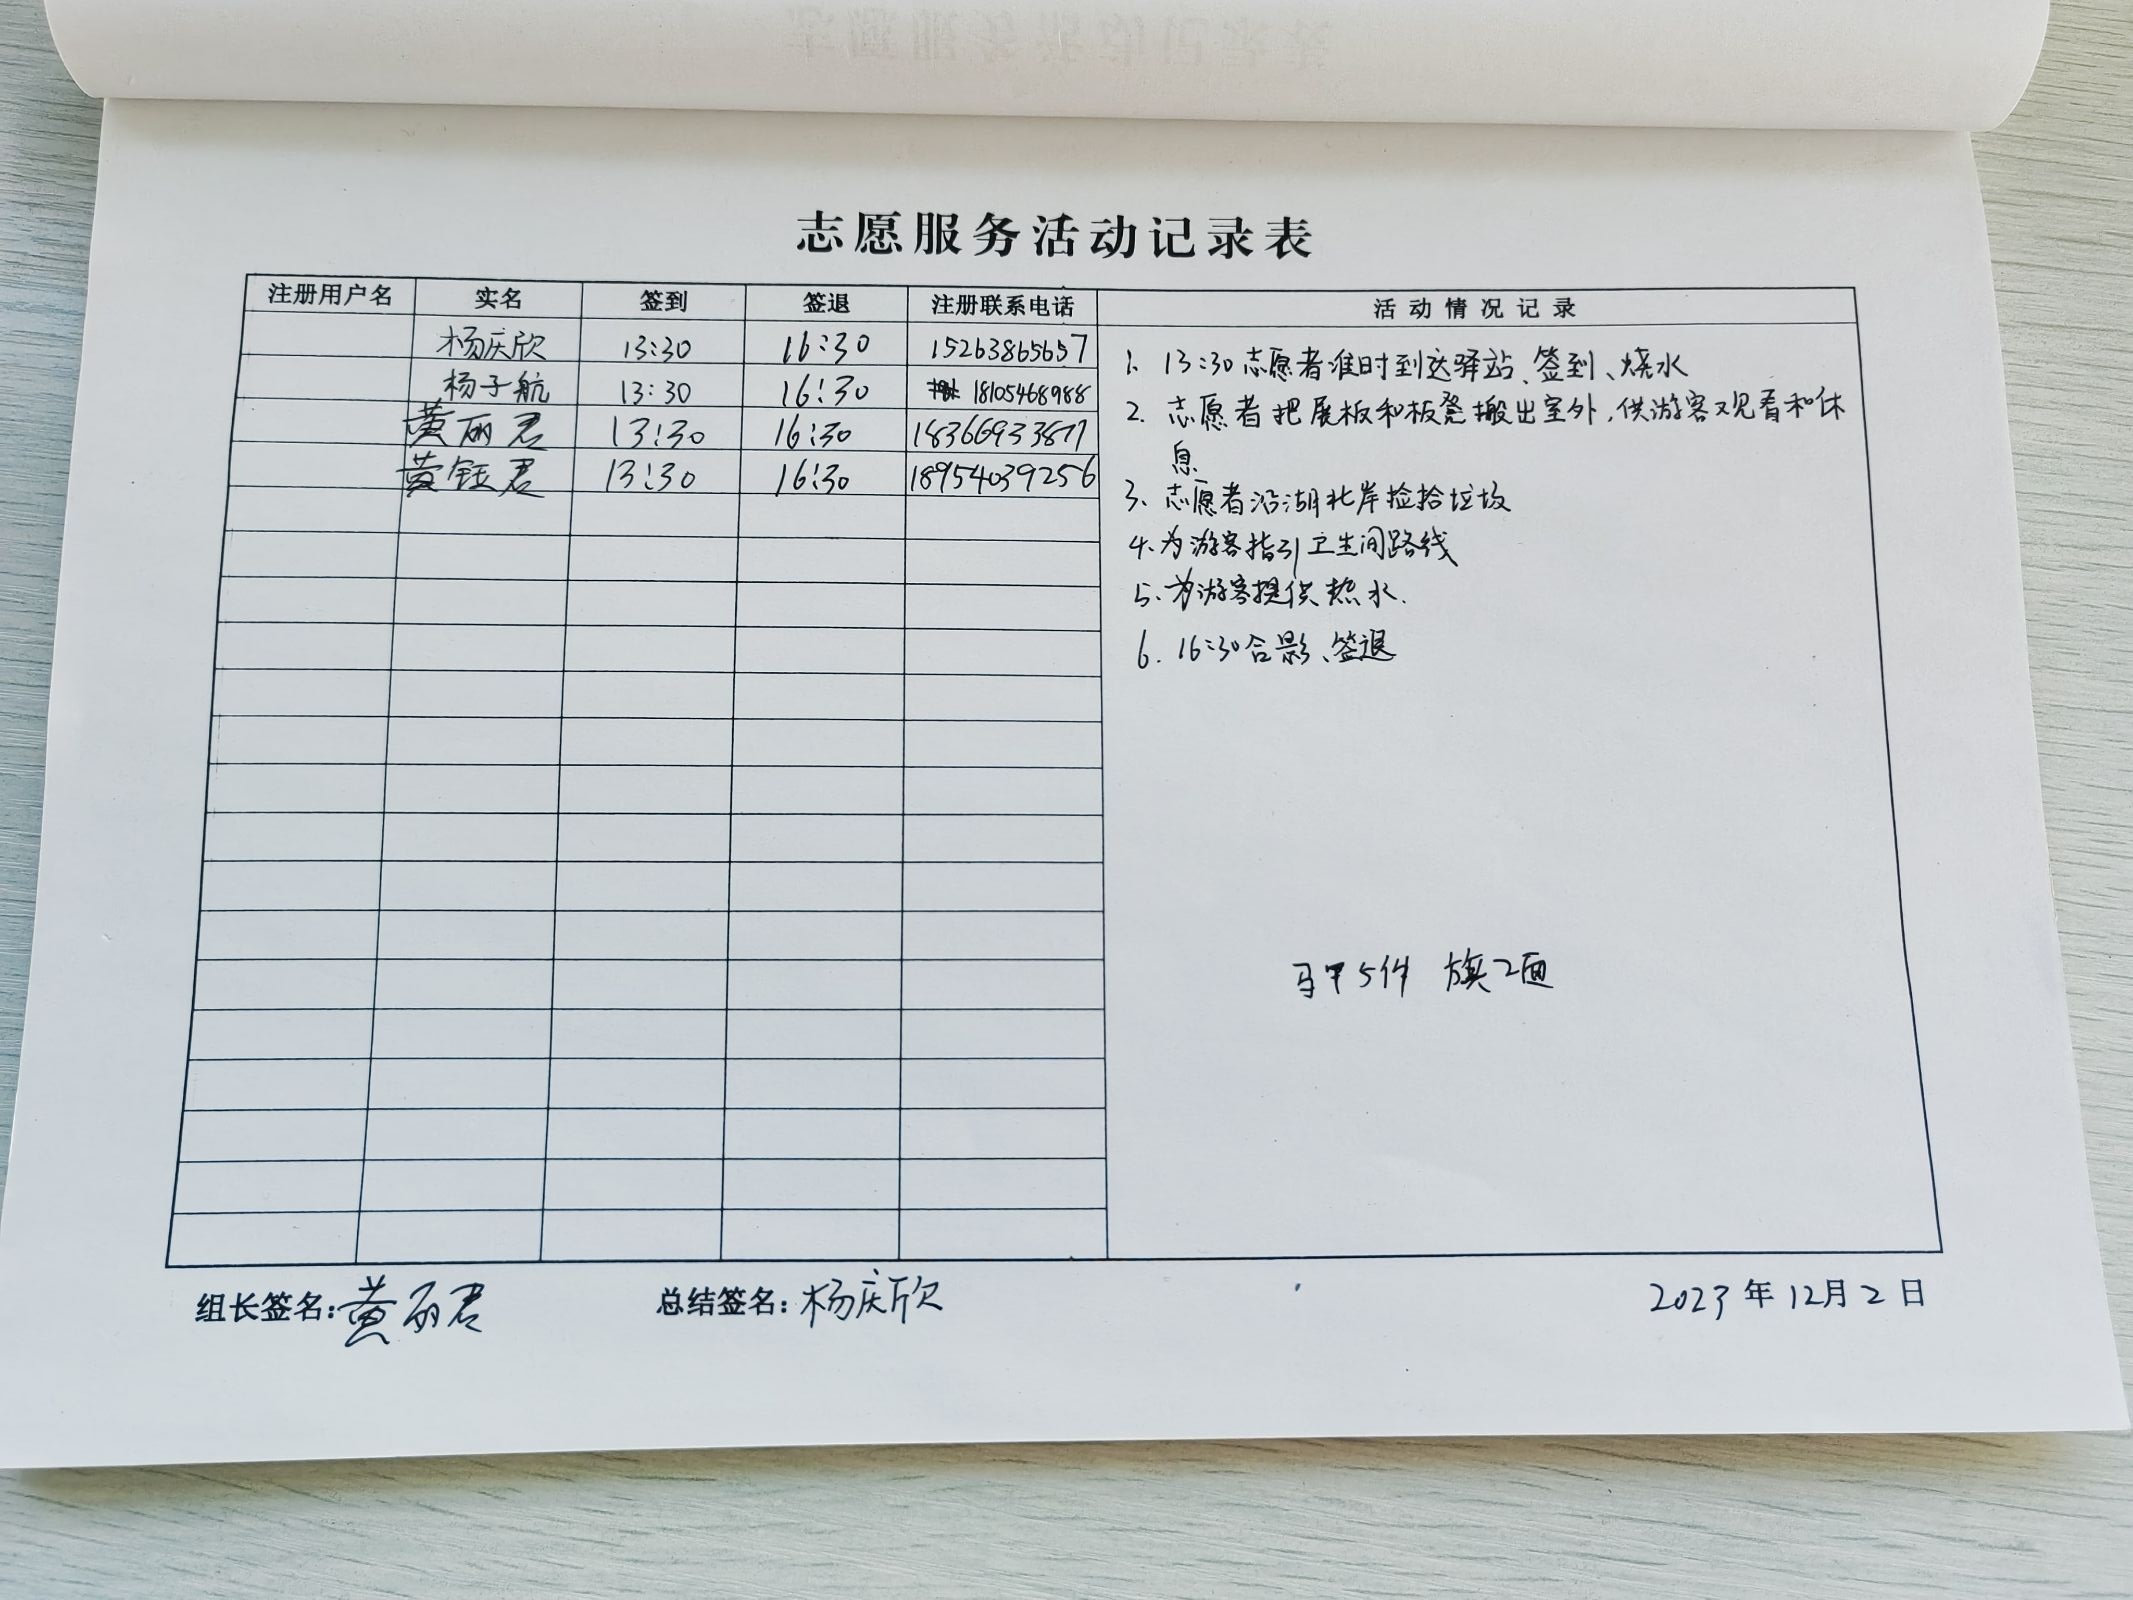 志愿服务活动记录表
注册用户名 实名 签到 签退 注册联系电话 活动情况记录
杨庆欣 13:30 16:30 15263865657
杨子航 13:30 16:30 18105468988
黄丽君 13:30 16:30 18366933877
黄钰君 13:30 16:30 18954039256
1. 13:30志愿者准时到达驿站、签到、烧水
2. 志愿者把展板和板凳搬出室外,供游客观看和休
息
3、志愿者沿湖北岸捡拾垃圾
4、为游客指引卫生间路线
5、为游客提供热水.
6. 16:30合影、签退
马甲5件 旗2面
组长签名:黄丽君 总结签名:杨庆欣 2023年12月2日